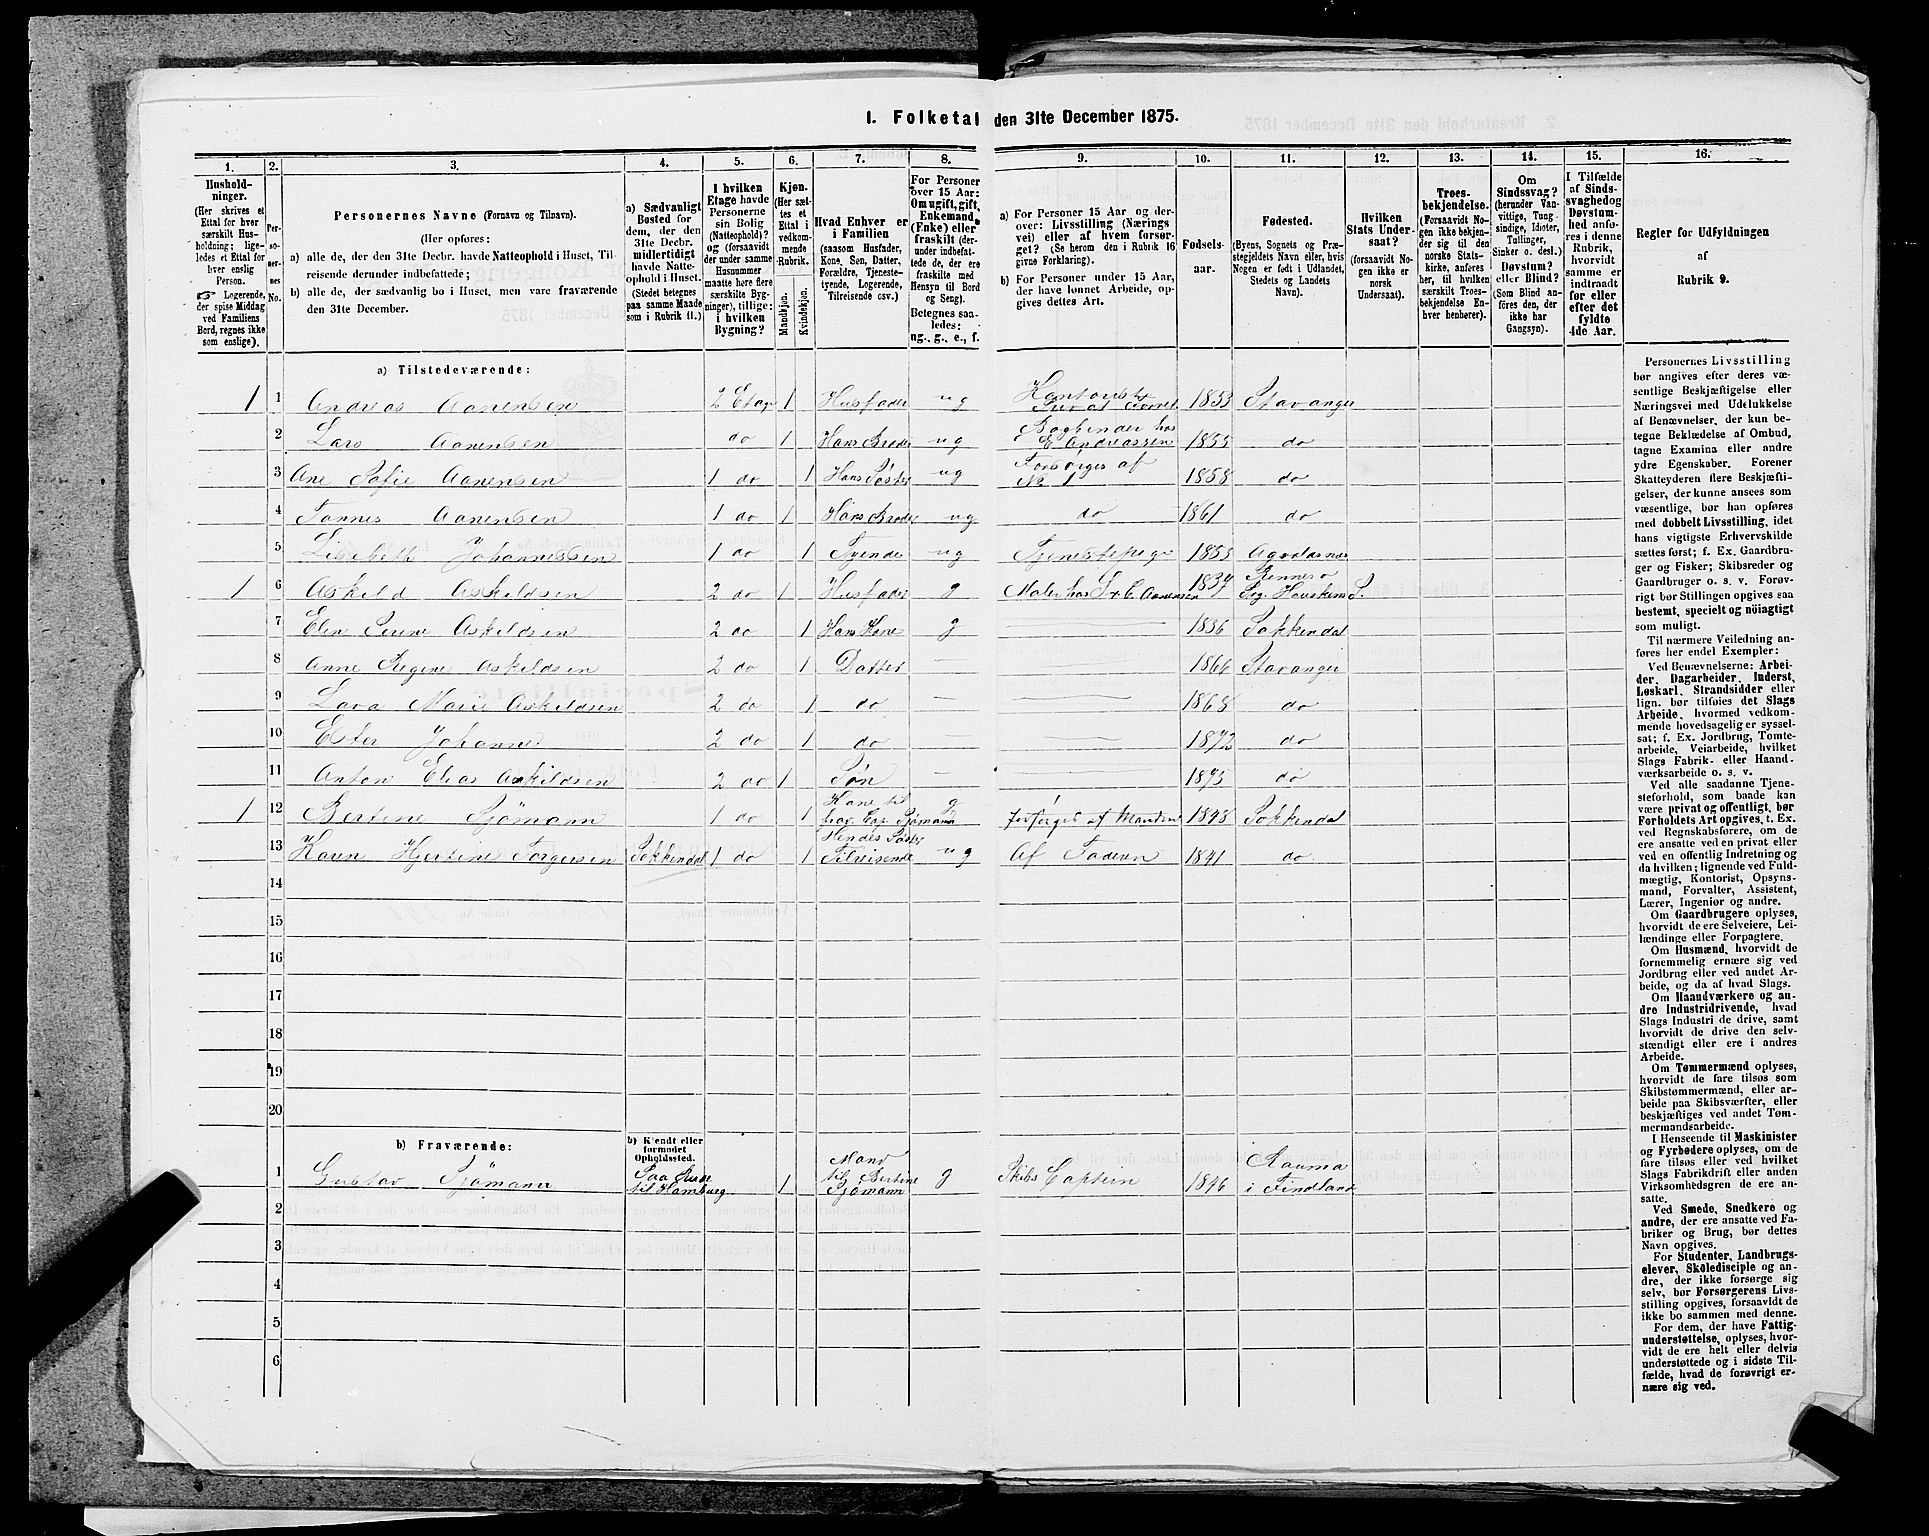 1. Folketal den 31te December 1875.
1. 2. 3. 4. 5. 6. 7. 8. 9. 10. 11. 12. 13. 14. 15. 16.
Husholdninger.
(Her skrives et
Ettal for hver
særskilt Husholdning;
ligeledes et Ettal for
hver enslig
Person.
Logerende,
der spise Middag
ved Familiens
Bord, regnes ikke
som enslige).
Personernes No.
Personernes Navne (Fornavn og Tilnavn).
(Her opføres:
a) alle de, der den 31te Decbr. havde Natteophold i Huset, Tilreisende derunder indbefattede;
b) alle de, der sædvanlig bo i Huset, men vare fraværende
den 31te December.
a) Sædvanligt
Bosted for
dem, der den
31te Decbr.
midlertidigt
havde Natteophold i Huset.
(Stedet betegnes
paa samme Maade
som i Rubrik 11.)
I hvilken
Etage havde
Personerne
sin Bolig
(Natteophold)?
og (forsaavidt
der under samme
Husnummer
maatte høre flere
særskilte Bygninger), tillige:
i hvilken
Bygning?
Kjøn.
(Her sættes et
Ettal i
vedkommende
Rubrik.
Mandkjøn.
Kvindekjøn.
Hvad Enhver er
i Familien
(saasom Husfader,
Kone, Søn, Datter,
Forældre, Tjenestetyende, Logerende,
Tilreisende osv.)
For Personer
over 15 Aar:
Om ugift, gift,
Enkemand
(Enke) eller
fraskilt (derunder indbefattede de, der ere
fraskilte med
Hensyn til Bord
og Seng).
Betegnes saaledes:
ug., g., e., f.
a) For Personer 15 Aar og derover: Livsstilling (Næringsvei) eller af hvem forsørget? (Se herom den i Rubrik 16
givne Forklaring).
b) For Personer under 15 Aar,
der have lønnet Arbeide, opgives dettes Art.
Fødselsaar.
Fødested.
(Byens, Sognets og Præstegjeldets Navn eller, hvis
Nogen er født i Udlandet,
Stedets og Landets
Navn).
Hvilken
Stats Undersaat?
(forsaavidt
Nogen ikke er
norsk
Undersaat).
Troesbekjendelse.
(Forsaavidt Nogen ikke bekjender sig til den
norske Statskirke, anføres
her, til hvilken
særskilt Troesbekjendelse Enhver henhører).
Om
Sindssvag?
(herunder Vanvittige, Tungsindige, Idioter,
Tullinger,
Sinker o. desl.)
Døvstum?
eller Blind?
(Som Blind anføres den, der
ikke har
Gangsyn).
I Tilfælde
af Sindssvaghed og
Døvstumhed anføres i denne
Rubrik,
hvorvidt
samme er
indtraadt
før eller
efter det
fyldte
4de Aar.
Regler for Udfyldningen
af
Rubrik 9.
a) Tilstedeværende:
1 1 Andreas Aanensen 2 Etage 1 Husfader ug 1853 Stavanger
2 Lars Aanensen do 1 Hans Broder ug Bogbinder hos E. Andreassen 1855 do
3 Ane Sofie Aanensen 1 do 1 Hans Søster ug Forsørges af No 1 1858 do
4 Aanensen 1 do 1 Hans Broder ug do 1861 do
5 Lisebeth Johannessen 1 do 1 Tyende ug Tjenestepige 1855
1 6 Askild Askildsen 2 do 1 Husfader g Maler hos Aanensen 1834 Rennesø
7 Elen Serine Askildsen 2 do 1 Hans Kone g 1836 Sokkendal
8 Anne Regine Askildsen 2 do 1 Datter 1866 Stavanger
9 Lava Marie Askildsen 2 do 1 do 1868 do
10 Ester Johanne 2 do 1 do 1872 do
11 Anton Elias Askildsen 2 do 1 Søn 1875 do
1 12 Bertine Sjömann 1 do 1 Kone til Sjömann g forsørges af Manden 1848 Sokkendal
13 Karen Hjertine Torgersen Sokkendal 1 do 1 Hendes Søster Tilreisende ug Af Faderen 1841 do
14
15
16
17
18
19
20
b) Fraværende:
b) Kjendt eller
formodet
Opholdssted.
1 Gustav Sjömann Paa Reise til Hamburg 1 Mand til Bertine Sjömann g Skibs Captein 1846 Rauma i Findland
2
3
4
5
6
Personernes Livsstilling
bør angives efter deres væsentlige Beskjæftigelse eller
Næringsvei med Udelukkelse
af Benævnelser, der kun betegne Beklædelse af Ombud,
tagne Examina eller andre
ydre Egenskaber. Forener
Skatteyderen flere Beskjæftigelser, der kunne ansees som
væsentlige, bør han opføres
med dobbelt Livsstilling, idet
hans vigtigste Erhvervskilde
sættes først; f. Ex. Gaardbruger og Fisker; Skibsreder og
Gaardbruger o. s. v. Forøvrigt bør Stillingen opgives saa
bestemt, specielt og nøiagtigt
som muligt.
Til nærmere Veiledning anføres her endel Exempler:
Ved Benævnelserne: Arbeider, Dagarbeider, Inderst,
Løskarl, Strandsidder eller
lign. bør tilføies det Slags
Arbeide, hvormed vedkommende hovedsagelig er sysselsat; f. Ex. Jordbrug, Tomtearbeide, Veiarbeide, hvilket
Slags Fabrik- eller Haandværksarbeide o. s. v.
Ved alle saadanne Tjenesteforhold, som baade kan
være privat og offentligt, bør
Forholdets Art opgives, t. Ex.
ved Regnskabsførere, om de
ere ansatte ved en privat eller
ved en offentlig Indretning og
da hvilken; lignende ved Fuldmægtig, Kontorist, Opsynsmand, Forvalter, Assistent,
Lærer, Ingeniør og andre.
Om Gaardbrugere oplyses,
hvorvidt de ere Selveiere, Leilændinge eller Forpagtere.
Om Husmænd, hvorvidt de
fornemmelig ernære sig ved
Jordbrug eller ved andet Arbeide, og da af hvad Slags.
Om Haandværkere og andre Industridrivende, hvad
Slags Industri de drive, samt
hvorvidt de drive den selvstændigt eller ere i andres
Arbeide.
Om Tømmermænd oplyses,
hvorvidt de fare tilsøs som
Skibstømmermænd, eller arbeide paa Skibsværfter, eller
beskjæftiges ved andet Tømmermandsarbeide.
I Henseende til Maskinister
og Fyrbødere oplyses, om de
fare tilsøs eller ved hvilket
Slags Fabrikdrift eller anden
Virksomhedsgren de ere ansatte.
Ved Smede, Snedkere og
andre, der ere ansatte ved Fabriker og Brug, bør dettes
Navn opgives.
For Studenter, Landbrugselever, Skoledisciple og andre, der ikke forsørge sig
selv, bør Forsørgerens Livsstilling opgives, forsaavidt de
ikke bo sammen med denne.
For dem, der have Fattigunderstøttelse, oplyses, hvorvidt de ere helt eller delvis
understøttede og i sidste Tilfælde, hvad de forøvrigt ernære sig ved.